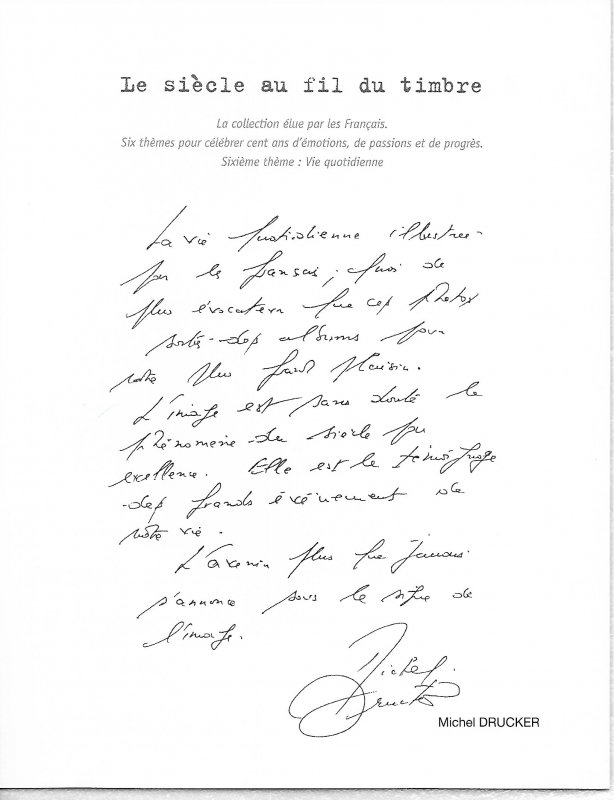 Le siècle au fil du timbre
La collection élue par les Français.
Six thèmes pour célébrer cent ans d'émotions, de passions et de progrès.
Sixième thème : Vie quotidienne
La vie quotidienne illustrée
par les français, quoi de
plus évocateur que ces photos
sorties des albums pour
notre plus grand plaisir.
L'image est sans doute le
phénomène du siècle par
excellence. Elle est le témoignage
des grands évènements de
notre vie.
L'avenir plus que jamais
s'annonce sous le signe de
l'image.
Michel
Drucker
Michel DRUCKER